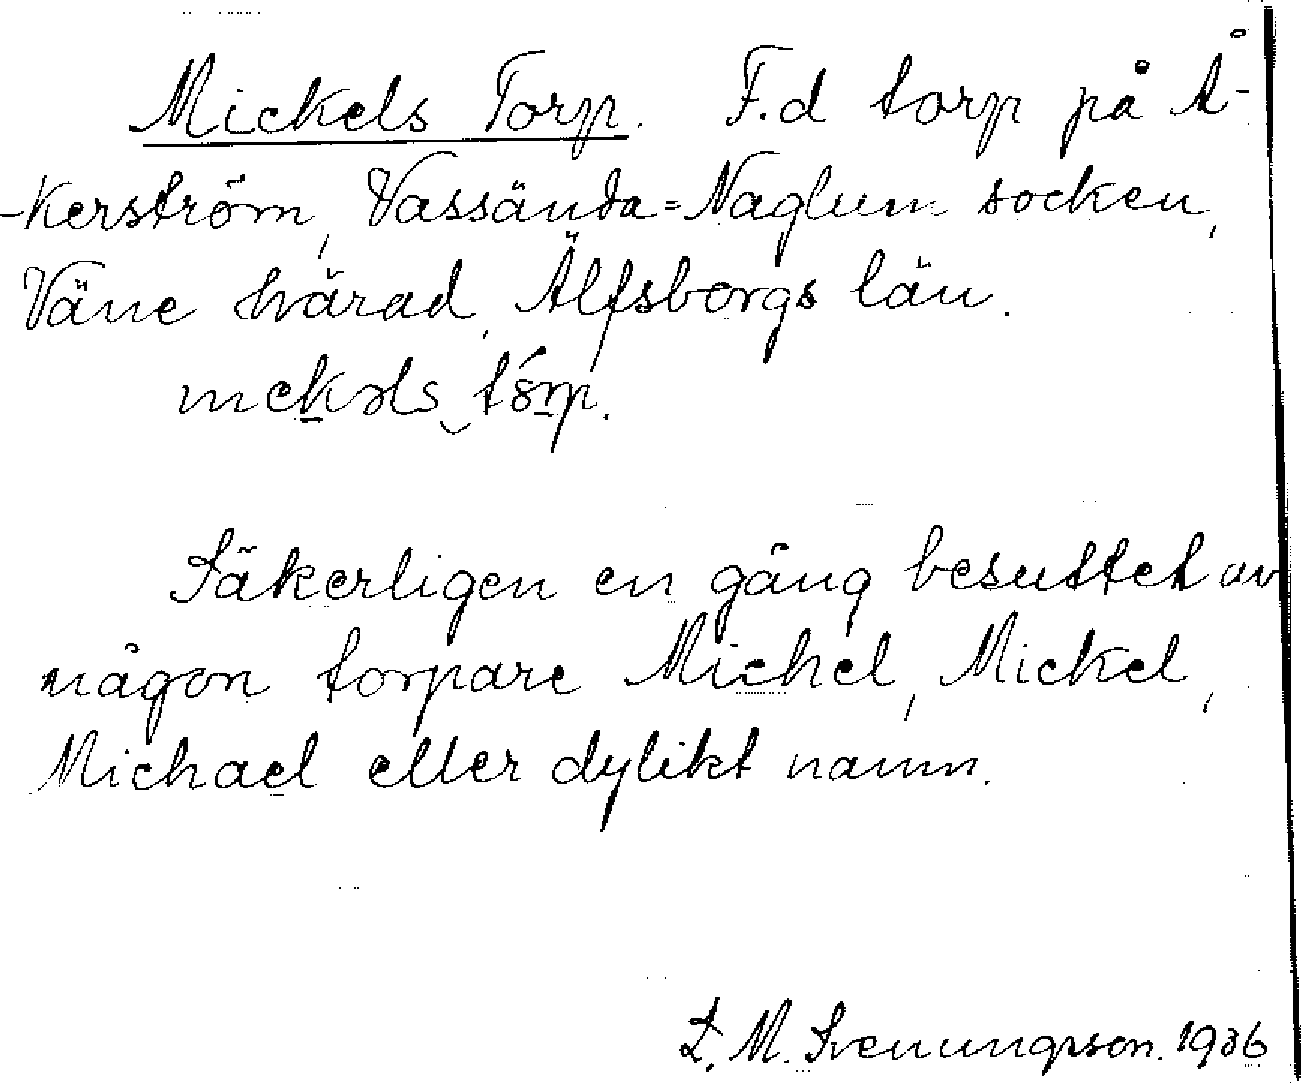 Mickels Torp. F.d torp på Å-
-kerström, Vassända=Naglum socken,
Väne härad, Älfsborgs län.
Säkerligen en gång besuttet av
någon torpare Michel, Mickel,
Michael eller dylikt namn.
L. M. Svenungsson. 1936